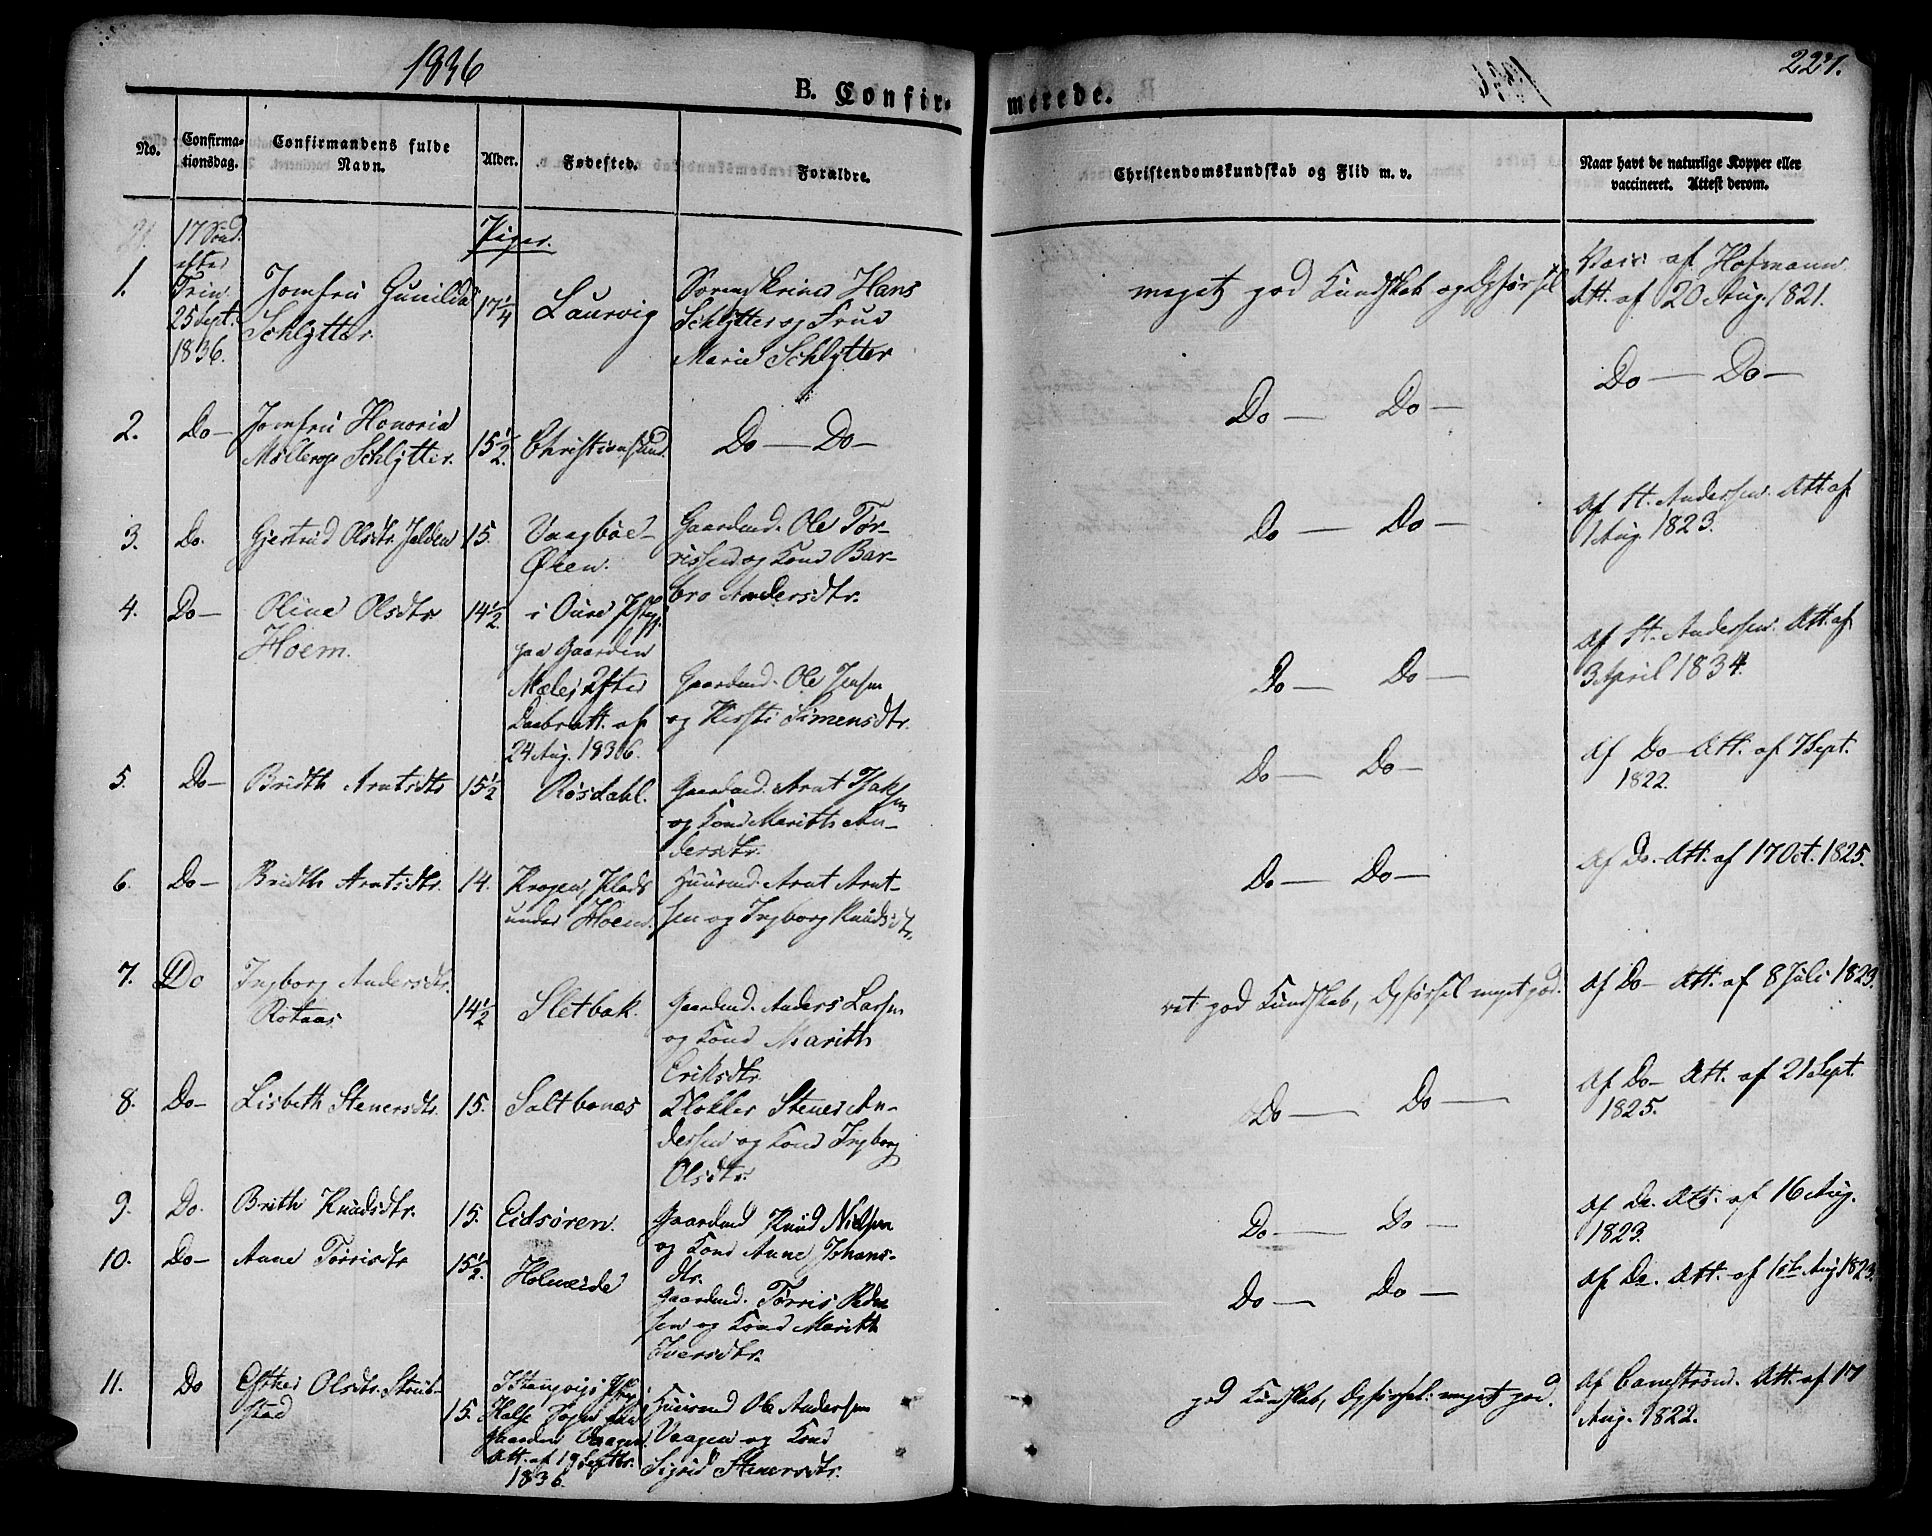 1836
227.
B. Confir-
merede.
No.
Confirma-
tionsdag.
Confirmandens fulde
Navn.
Alder.
Fødested.
Forældre.
Christendomskundskab og Flid m. v.
Naar havt de naturlige Kopper eller
vaccineret. Attest derom.
Piger.
1.
17 Sønd.
efter
Trin
25 Sept.
1836.
Jomfru Gunilda
Schlytter.
17 1/4
Laurvig
Sorenskriver Hans
Schlytter og Frue
Marie Schlytter
meget god Kundskab og Opførsel
Vacc. af Hofmann
Att. af 20 Aug. 1821.
2.
Do-
Jomfru Honoria
Møllerop Schlytter.
15 1/2.
Christiansund.
Do- Do-
Do- Do-
Do- Do-
3.
Do.
Gjertrud Olsdtr Jelden
15.
Vaagbøe-
Øren.
Gaardmd. Ole Tør-
rissen og Kone Bar-
bro Andersdtr.
Do- Do-
af St. Andersen. Att. af
1 Aug. 1823.
4.
Do-
Oline Olsdtr.
Hoem.
14 1/2.
i Oure Pstgj.
paa Gaarden
efter
Daabsatt. af
24 Aug. 1836.
Gaardmd. Ole Jensen
og Kirsti Simensdtr.
Do- Do-
af St. Andersen. Att. af
3 April 1834.
5.
Do-
Bridth Arntsdtr
15 1/2
Røsdahl.
Gaardmd. Arnt Isaksen
og Kone Marith An-
dersdtr.
Do- Do-
af Do- Att. af 7 Sept.
1822.
6.
Do-
Bridth Arntsdtr.
14.
Krogen, Plads
under Hoem.
Huusmd. Arnt Arnt-
sen og Ingborg Knudsdtr.
Do- Do-
af Do. Att. af 17 Oct. 1825.
7.
Do
Ingborg Andersdtr.
Rotaas
14 1/2
Sletbak.
Gaardmd. Anders Larsen
og Kone Marith
Eriksdtr.
ret god Kundskab, Opførsel meget god.
af Do- Att. af 8 Juli 1823.
8.
Do-
Lisbeth Stenersdtr.
15.
Saltbones
Klokker Stener An-
dersen og Kone Ingborg
Olsdtr.
Do- Do-
af Do- Att. af 21 Sept.
1825.
9.
Do.
Brith Knudsdtr.
15.
Eidsøren.
Gaardmd Knud Nielsen
og Kone Anne Johans-
dtr.
Do- Do-
af Do. Att. af 16 Aug.
1823.
10.
Do-
Anne Tørrisdtr
15 1/2.
Holmeide
Gaardmd. Tørris Peder
sen og Kone Marith
Iversdtr.
Do- Do-
af Do. Att. af 1ste Aug 1823.
11.
Do
Esther Olsdtr. Strub-
stad
15.
I Stangvigs Pstgj.
Halse Sogn paa
Gaarden Vaagen.
Att. af 19 Septbr.
1836.
Huusmd Ole Andersen
Vaagen og Kone
Sigrid Stenersdtr.
god Kundskab, Opførsel meget god.
af Canestrøm. Att. af 17
Aug. 1822.